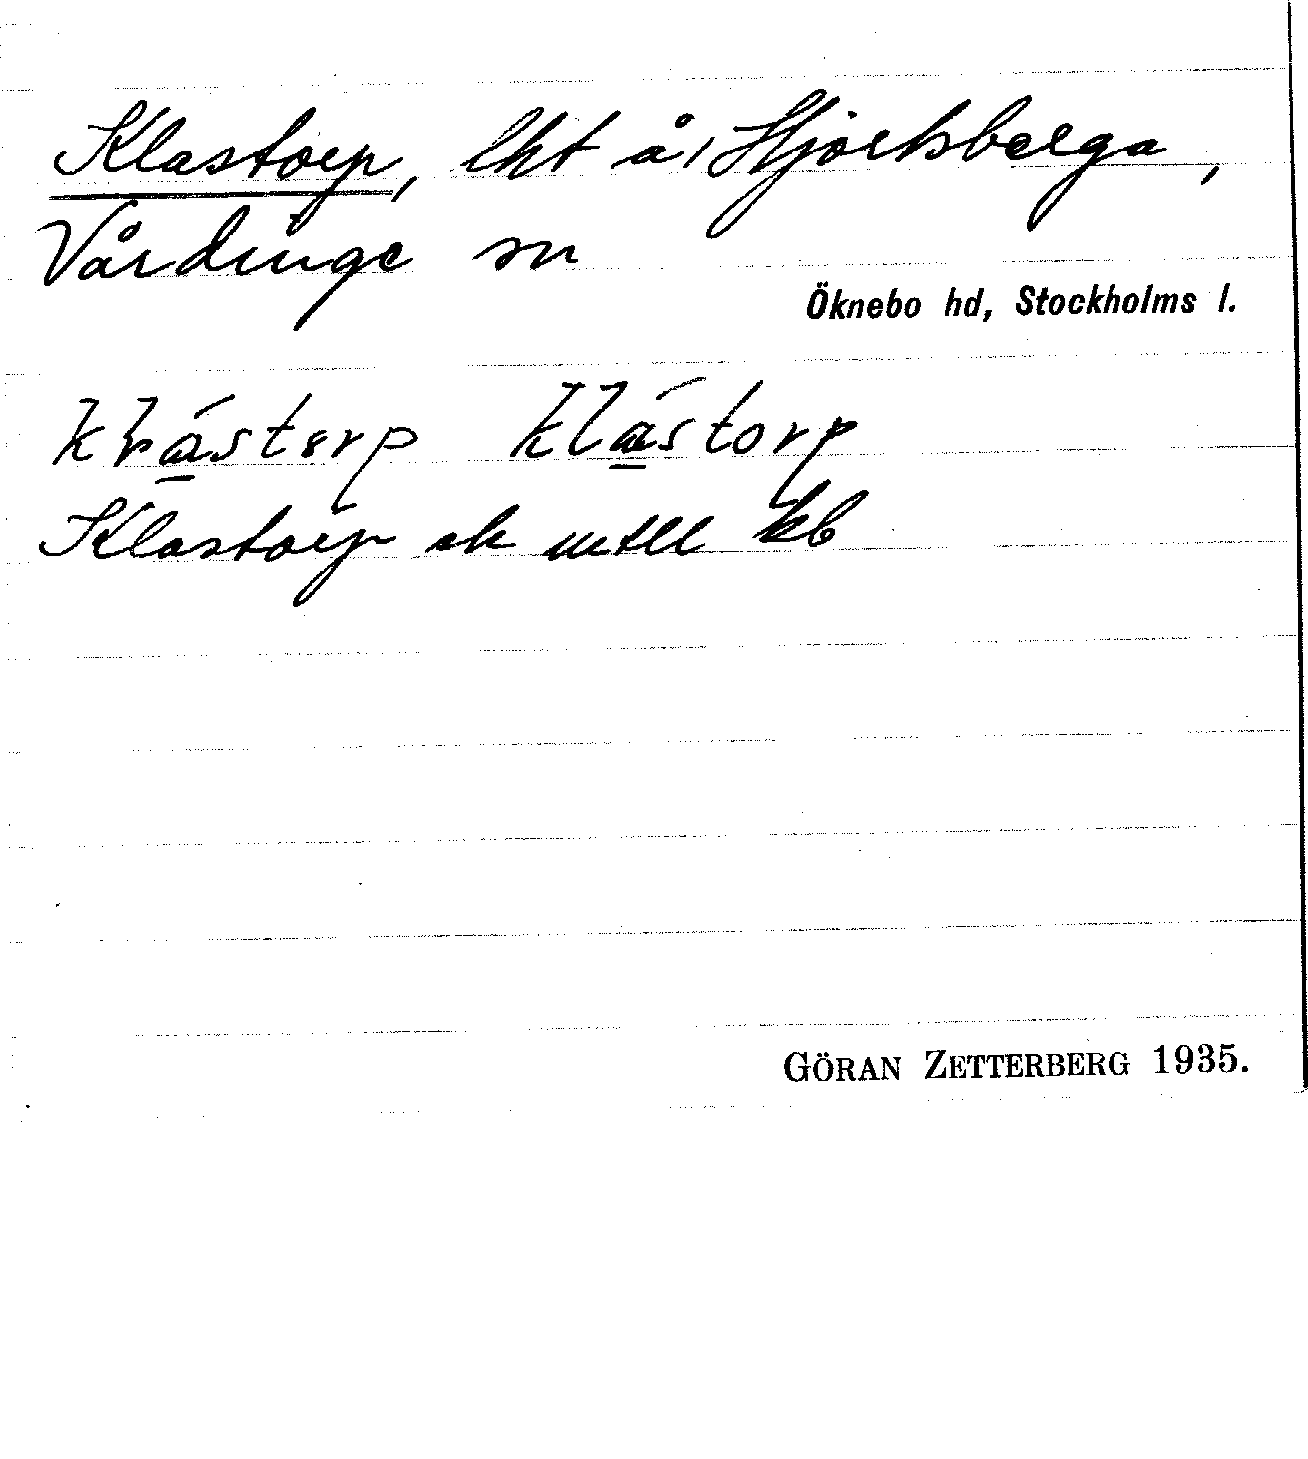 Klastorp, lht å Hjortsberga,
Vårdinge sn
Öknebo hd, Stockholms l.
klástorp
Klastorp ek kb
GÖRAN ZETTERBERG 1935.